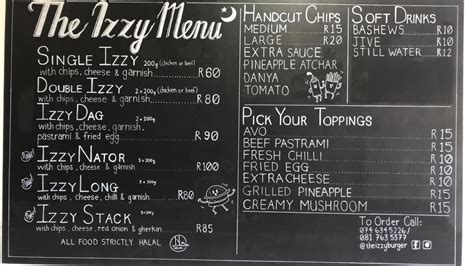 The Izzy Menu
Single Izzy 200g (chicken or beef)
with chips, cheese & garnish R60
Double Izzy 2x200g (chicken or beef)
with chips, cheese & garnish. R80
Izzy Dag 2x200g
with chips, cheese, garnish,
pastrami & fried egg R90
Izzy Nator 3x200g
with chips, cheese & garnish R100
Izzy Long
with chips, cheese, chilli & garnish R80
Izzy Stack
with chips, cheese, red onion & gherkin R85
ALL FOOD STRICTLY HALAL
Handcut Chips
MEDIUM R15
LARGE R20
EXTRA SAUCE
PINEAPPLE ATCHAR
DANYA
TOMATO
Soft Drinks
BASHEWS R10
JIVE R10
STILL WATER R12
Pick Your Toppings
AVO R15
BEEF PASTRAMI R15
FRESH CHILLI R15
FRIED EGG R15
EXTRA CHEESE R15
GRILLED PINEAPPLE R15
CREAMY MUSHROOM R15
To Order Call:
074 634 5226/
081 763 5377
@theizzyburger